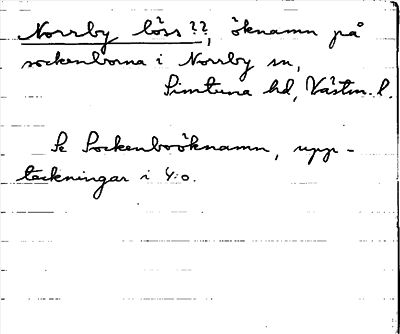 Norrby löss??, öknamn på
sockenborna i Norrby sn,
Simtuna hd, Västm. l.
Se Sockenboöknamn, upp-
teckningar i 4:o.